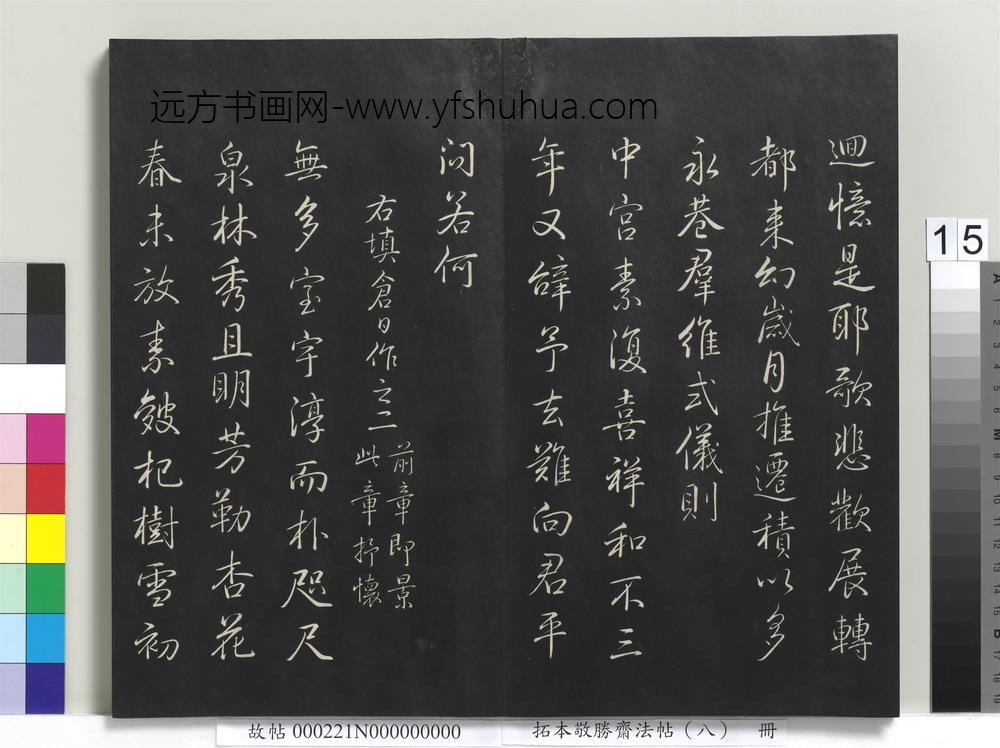 远方书画网-www.yfshuhua.com
迴憶是耶歌悲歡展轉
都來幻歲月推遷積以多
永巷羣維式儀則
中宮素復喜祥和不三
年又辭予去難向君平
問若何
右填倉日作之二 前章即景
此章抒懷
無多室宇淳而朴咫尺
泉林秀且明芳勒杏花
春未放素皴杞樹雪初
15
故帖 000221N000000000
拓本敬勝齋法帖（八） 冊